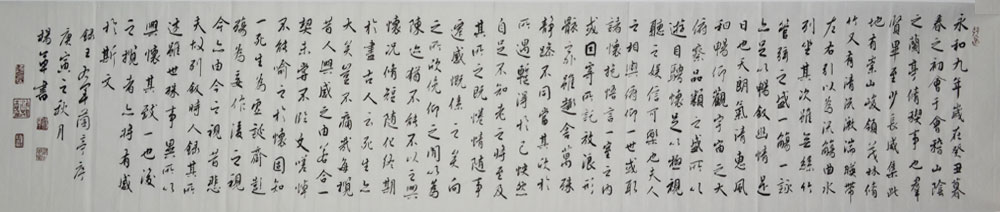 永和九年歲在癸丑暮
春之初會于會稽山陰
之蘭亭脩稧事也羣
賢畢至少長咸集此
地有崇山峻領茂林脩
竹又有清流激湍暎帶
左右引以為流觴曲水
列坐其次雖無絲竹
管弦之盛一觴一詠
亦足以暢敘幽情是
日也天朗氣清惠風
和暢仰觀宇宙之大
俯察品類之盛所以
遊目騁懷足以極視
聽之娛信可樂也夫人
之相與俯仰一世或取
諸懷抱悟言一室之內
或因寄所託放浪形
骸之外雖趣舍萬殊
靜躁不同當其欣於
所遇暫得於己快然
自足不知老之將至及
其所之既惓情隨事
遷感慨係之矣向
之所欣俛仰之間以為
陳迹猶不能不以之興
懷況脩短隨化終期
於盡古人云死生亦
大矣豈不痛哉每攬
昔人興感之由若合一
契未嘗不臨文嗟悼
不能喻之於懷固知
一死生為虛誕齊彭
殤為妄作後之視
今亦由今之視昔悲
夫故列敘時人錄其
述雖世殊事異所以
興懷其致一也後
之攬者亦將有感
於斯文
錄王右軍蘭亭序
庚寅之秋月
楊書